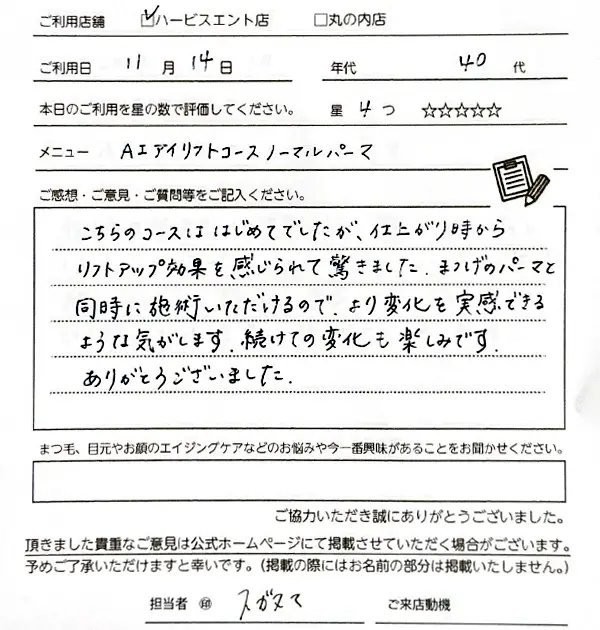 ご利用店舗 ☑ハービスエント店 □丸の内店
ご利用日 11月14日 年代 40代
本日のご利用を星の数で評価してください。 星 4つ ☆☆☆☆☆
メニュー Aエアイリフトコースノーマルパーマ
ご感想・ご意見・ご質問等をご記入ください。
こちらのコースははじめてでしたが、仕上がり時から
リフトアップ効果を感じられて驚きました。まつげのパーマと
同時に施術いただけるので、より変化を実感できる
ような気がします。続けての変化も楽しみです。
ありがとうございました。
まつ毛、目元やお顔のエイジングケアなどのお悩みや今一番興味があることをお聞かせください。
ご協力いただき誠にありがとうございました。
頂きました貴重なご意見は公式ホームページにて掲載させていただく場合がございます。
予めご了承いただけますと幸いです。(掲載の際にはお名前の部分は掲載いたしません。)
担当者 ㊞ スガヌマ ご来店動機